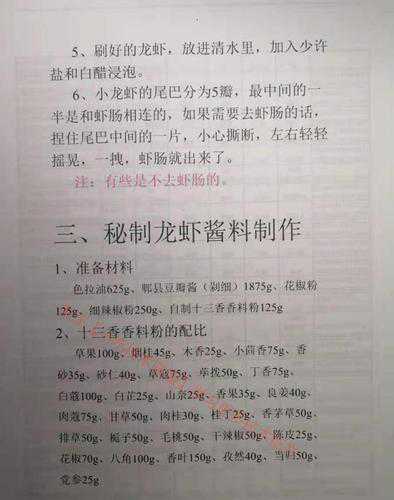 5、刷好的龙虾，放进清水里，加入少许
盐和白醋浸泡。
6、小龙虾的尾巴分为5瓣，最中间的一
半是和虾肠相连的，如果需要去虾肠的话，
捏住尾巴中间的一片，小心撕断，左右轻轻
摇晃，一拽，虾肠就出来了。
注：有些是不去虾肠的。
三、秘制龙虾酱料制作
1、准备材料
色拉油625g、郫县豆瓣酱（剁细）1875g、花椒粉
125g、细辣椒粉250g、自制十三香香料粉125g
2、十三香香料粉的配比
草果100g、烟桂45g、木香25g、小茴香75g、香
砂35g、砂仁40g、草寇75g、荜拨50g、丁香75g、
白蔻100g、白芷25g、山奈25g、香果35g、良姜40g、
肉蔻75g、甘草50g、肉桂30g、桂丁25g、香茅草50g、
排草50g、栀子50g、毛桃50g、干辣椒50g、陈皮25g、
花椒70g、八角100g、香叶150g、孜然40g、当归50g、
党参25g